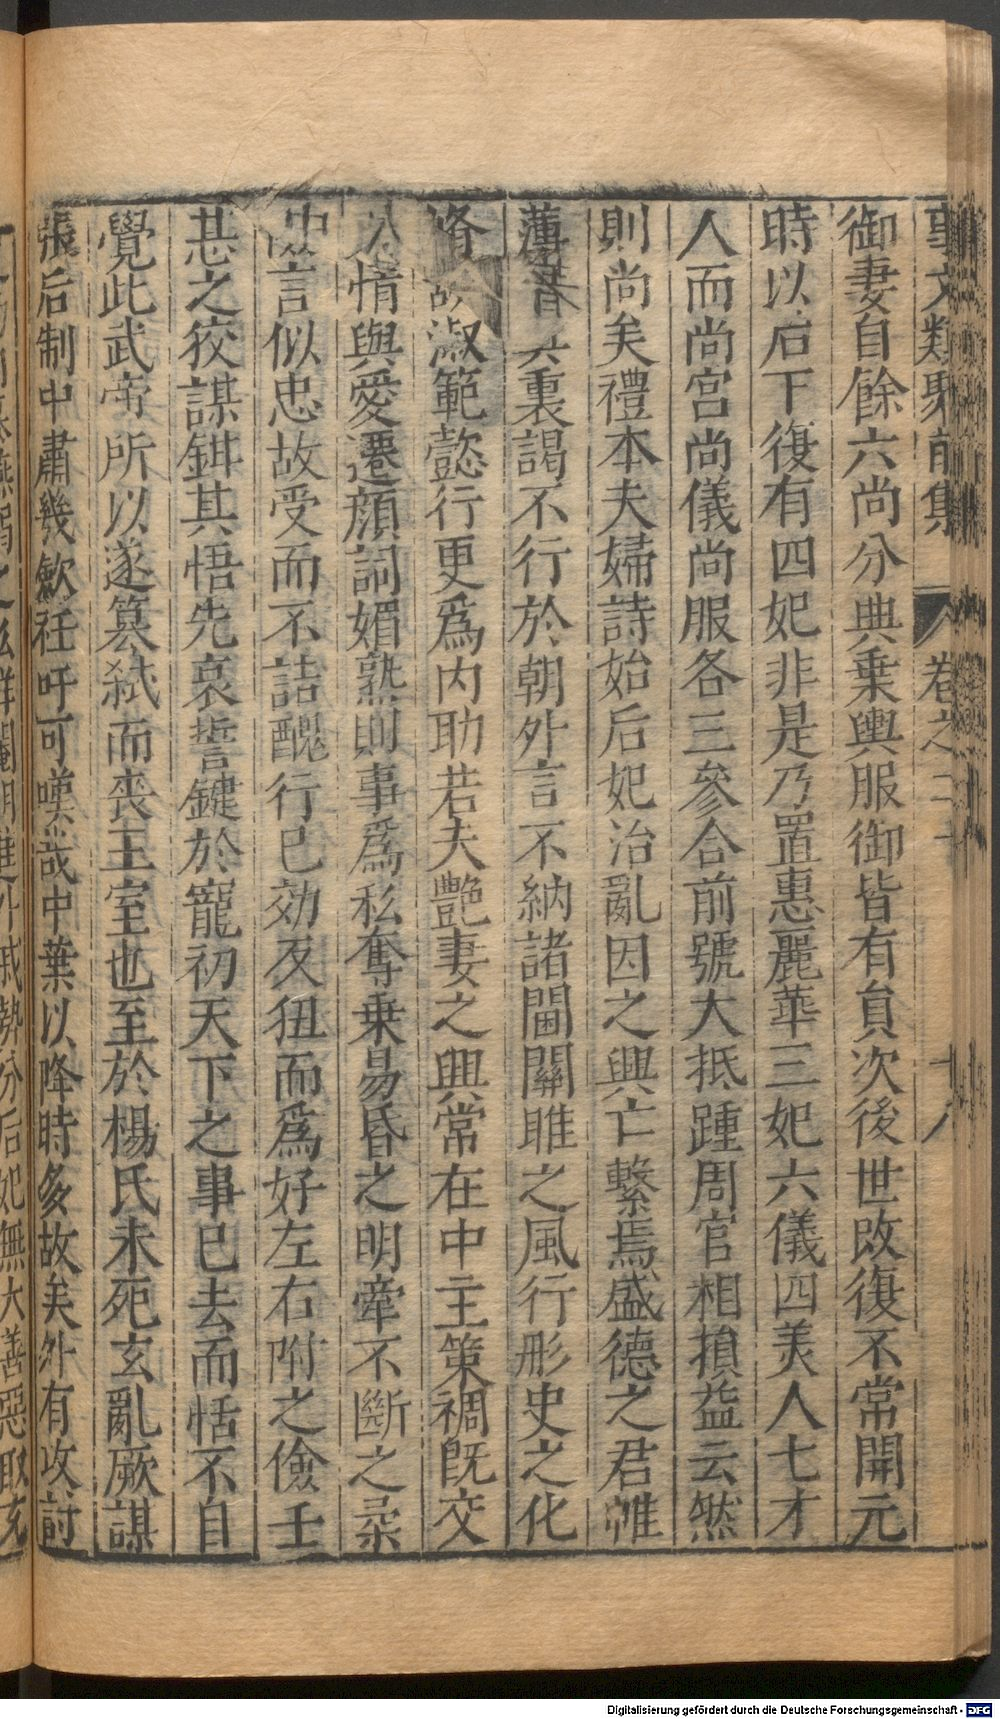 事文類聚前集 卷之二十 十八
御妻自餘六尚分典乗輿服御皆有員次後世改復不常開元
時以后下復有四妃非是乃置惠麗華三妃六儀四美人七才
人而尚宮尚儀尚服各三參合前號大抵踵周官相損益云然
則尚矣禮本夫婦詩始后妃治亂因之興亡繫焉盛德之君帷
薄 裏謁不行於朝外言不納諸閫關雎之風行彤史之化
脩故淑範懿行更爲内助若夫艷妻之興常在中主第裯既交
則情與愛遷顔詞媚熟則事爲私奪乗易昏之明牽不斷之柔
險言似忠故受而不詰醜行已効反狃而爲好左右附之儉壬
惎之狡謀鉺其悟先哀誓鍵於寵初天下之事已去而恬不自
覺此武帝所以遂簒弑而喪王室也至於楊氏未死玄亂厥謀
張后制中肅幾歛衽吁可嘆哉中葉以降時多故矣外有攻討
外戚勢分后妃無大善惡取充
Digitalisierung gefördert durch die Deutsche Forschungsgemeinschaft - DFG